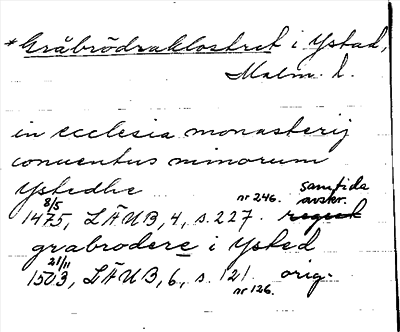 *Gråbrödraklostret i Ystad,
Malm. l.
in ecclesia monasterij
conuentus minorum
ystedhe
8/5 1475, LÄUB, 4, s. 227. nr 246. samtida avskr. regest
grabrodere i ysted
21/11 1503, LÄUB, 6, s. 121. nr 126. orig.